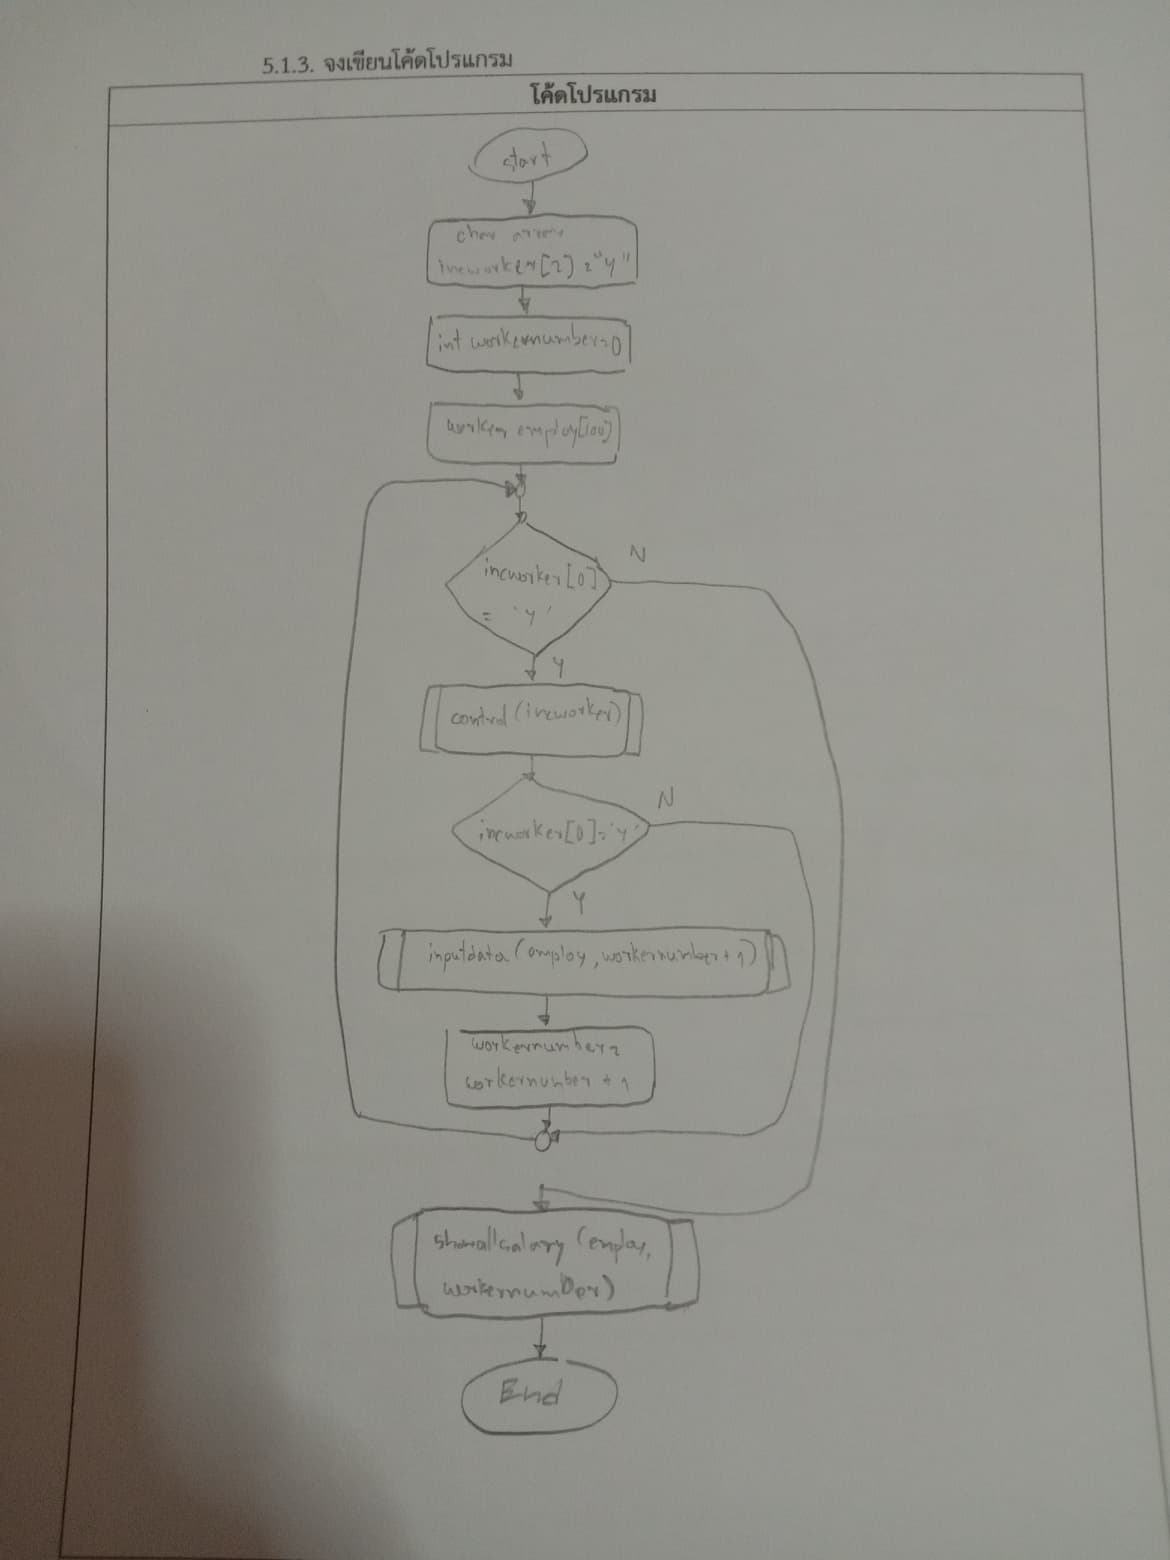 5.1.3. จงเขียนโค้ดโปรแกรม
โค้ดโปรแกรม
start
char array
incworker[2] = "y"
int workernumber=0
worker employ[100]
incworker[0]
= 'y'
N
Y
control(incworker)
incworker[0]='y'
N
Y
inputdata(employ, workernumber+1)
workernumber=
workernumber + 1
showallsalary (employ,
workernumber)
End